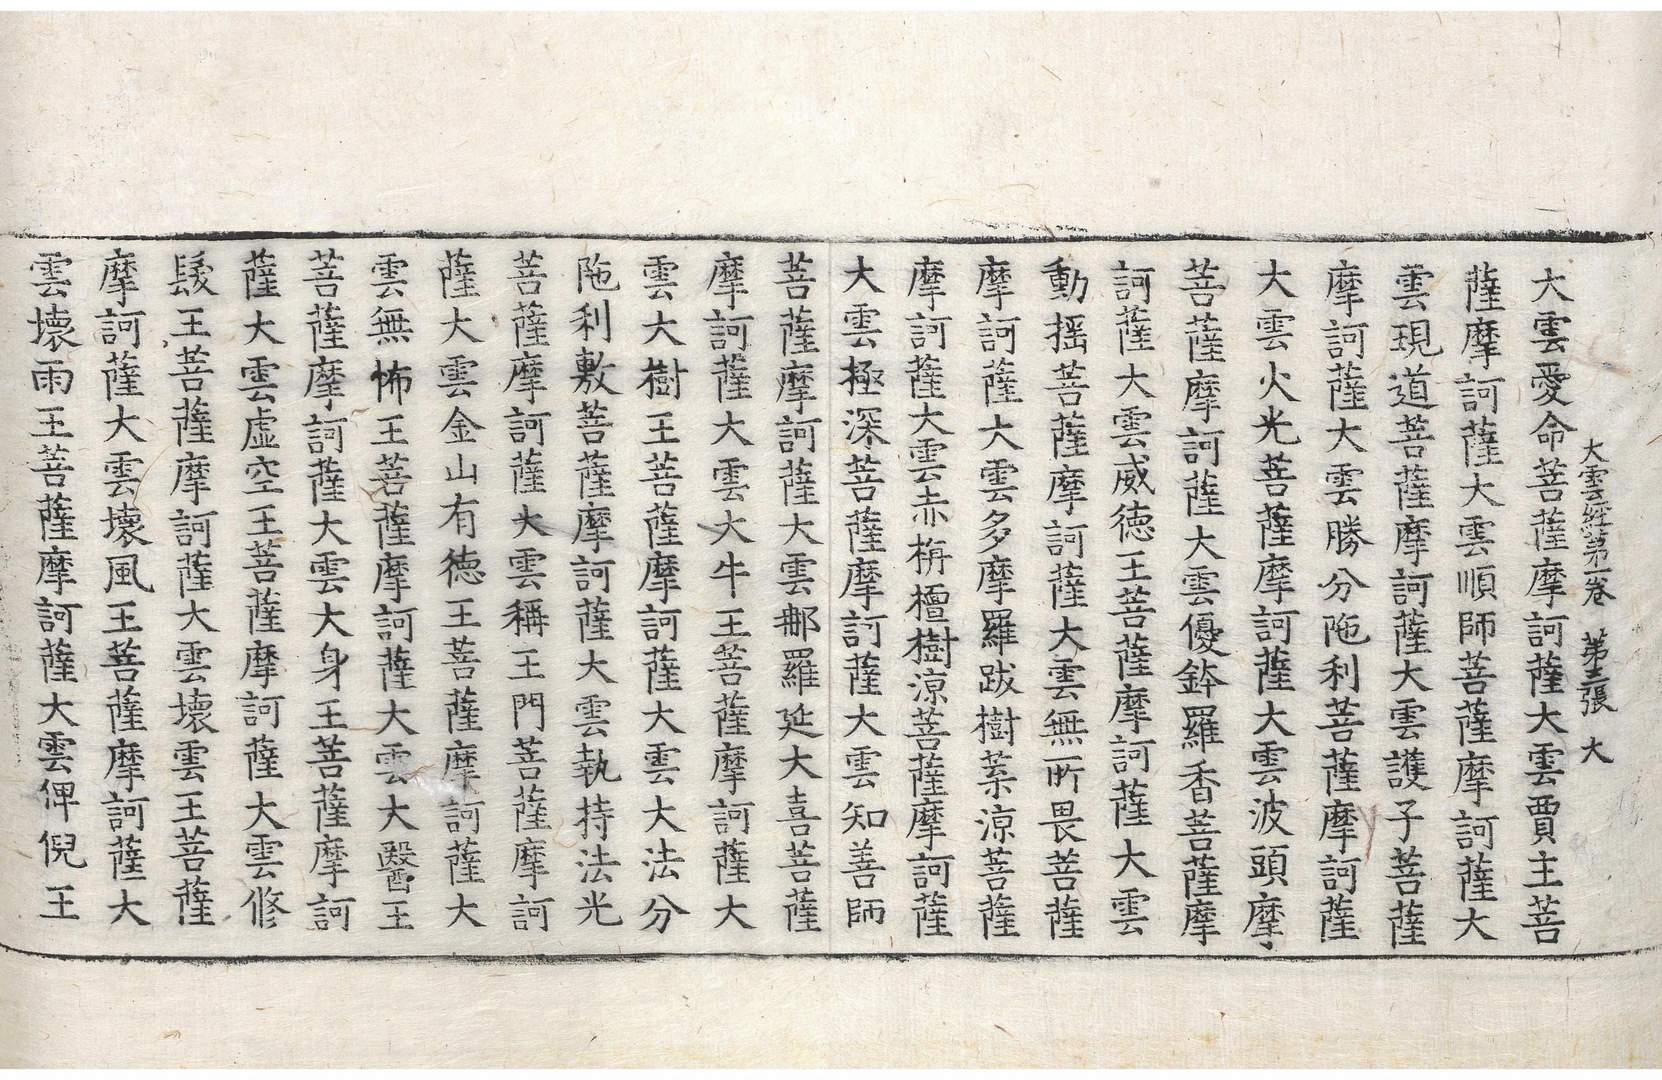 大雲經第一卷 第三張 大
大雲愛命菩薩摩訶薩大雲賈主菩
薩摩訶薩大雲順師菩薩摩訶薩大
雲現道菩薩摩訶薩大雲護子菩薩
摩訶薩大雲勝分陁利菩薩摩訶薩
大雲火光菩薩摩訶薩大雲波頭摩
菩薩摩訶薩大雲優鉢羅香菩薩摩
訶薩大雲威德王菩薩摩訶薩大雲
動揺菩薩摩訶薩大雲無所畏菩薩
摩訶薩大雲多摩羅跋樹葉涼菩薩
摩訶薩大雲赤栴檀樹涼菩薩摩訶薩
大雲極深菩薩摩訶薩大雲知善師
菩薩摩訶薩大雲那羅延大喜菩薩
摩訶薩大雲大牛王菩薩摩訶薩大
雲大樹王菩薩摩訶薩大雲大法分
陁利敷菩薩摩訶薩大雲執持法光
菩薩摩訶薩大雲稱王門菩薩摩訶
薩大雲金山有德王菩薩摩訶薩大
雲無怖王菩薩摩訶薩大雲大醫王
菩薩摩訶薩大雲大身王菩薩摩訶
薩大雲虛空王菩薩摩訶薩大雲修
髮王菩薩摩訶薩大雲壞雲王菩薩
摩訶薩大雲壞風王菩薩摩訶薩大
雲壞雨王菩薩摩訶薩大雲俾倪王